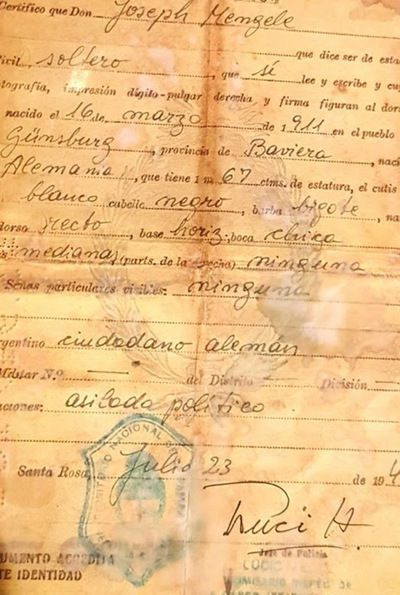 Certifico que Don Joseph Mengele
que dice ser de esta
civil soltero, que sí lee y escribe y cuy
otografía, impresión dígito-pulgar derecha y firma figuran al dors
nacido el 16 de marzo de 1911 en el pueblo
Günsburg, provincia de Baviera, naci
Alemania, que tiene 1 m 67 ctms. de estatura, el cutis
blanco cabello negro, barba bigote, na
dorso recto, base horiz, boca chica
s medianas (parts. de la oreja) ninguna
Señas particulares visibles: ninguna
rgentino ciudadano alemán
Militar N.º — del Distrito — División —
aciones: asilado político
Santa Rosa, Julio 23 de 194
NACIONAL
Jefe de Policía
LUCIO
UMENTO ACREDITA
TE IDENTIDAD